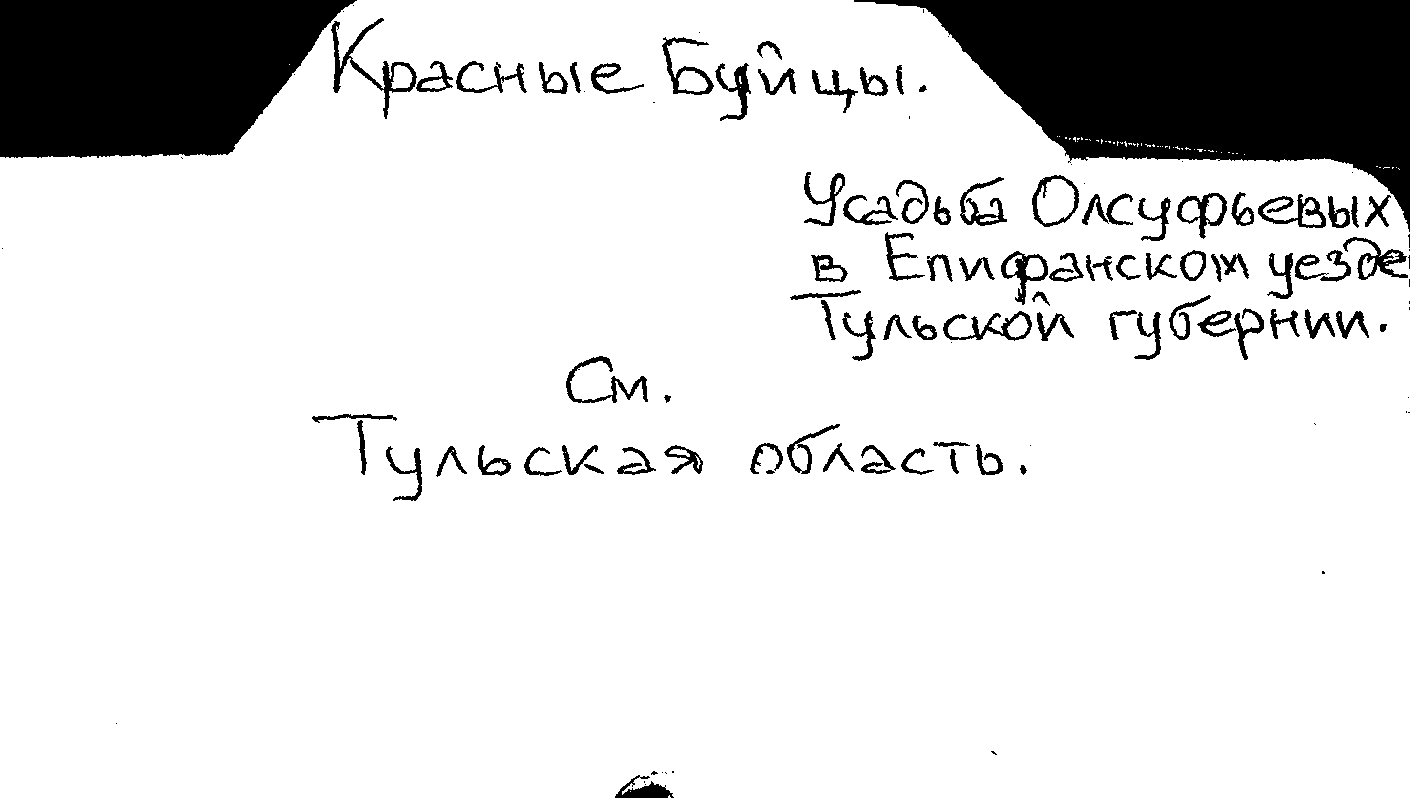 Красные Буйцы.
Усадьба Олсуфьевых
в Епифанском уезде
Тульской губернии.
См.
Тульская область.